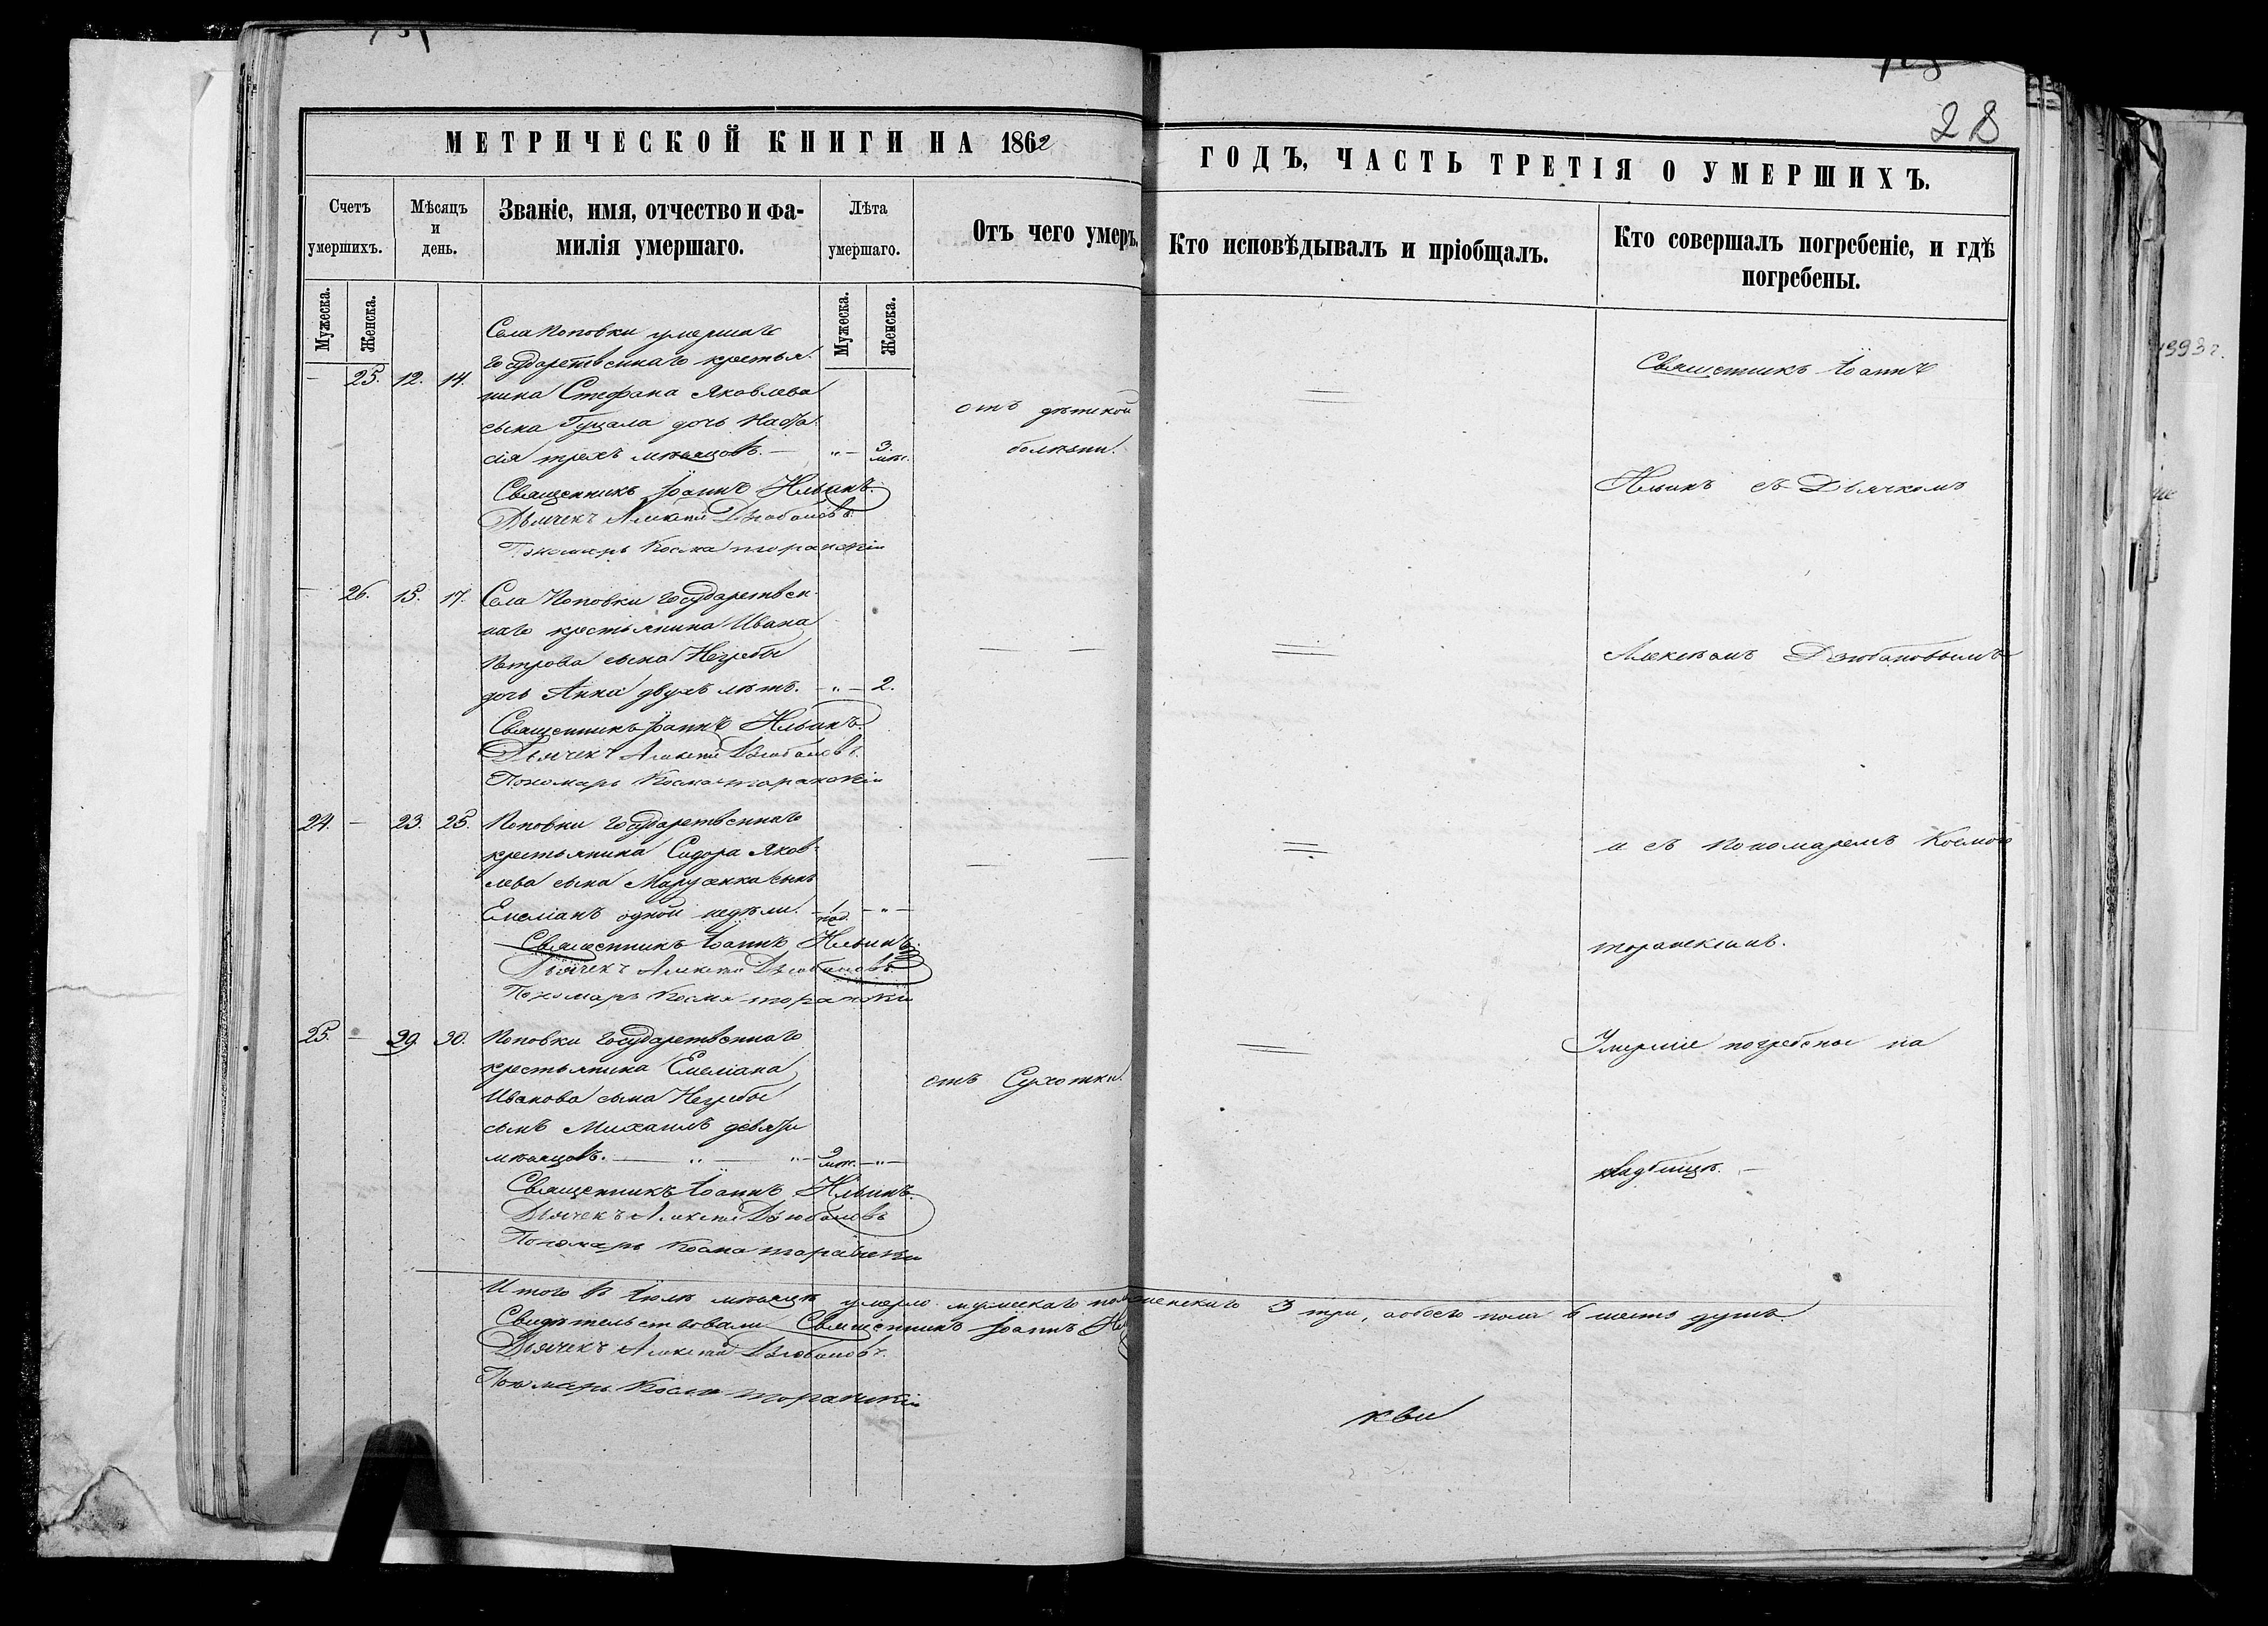 28
МЕТРИЧЕСКОЙ КНИГИ НА 1862
ГОДЪ, ЧАСТЬ ТРЕТІЯ О УМЕРШИХЪ.
Счетъ умершихъ.
Мѣсяцъ и день.
Званіе, имя, отчество и фа-
милія умершаго.
Лѣта умершаго.
Отъ чего умеръ.
Кто исповѣдывалъ и пріобщалъ.
Кто совершалъ погребеніе, и гдѣ
погребены.
Мужеска.
Женска.
Мужеска.
Женска.
Села Поповки умершаго
государственнаго крестья-
— 25. 12. 14. нина Стефана Яковлева
сына Гуцала дочь Наста-
сія трехъ мѣсяцовъ. — „ — 3 мѣс.
отъ дѣтской
болѣзни.
Священникъ Іоаннъ Ильинъ.
Дьячекъ Алексѣй Дзюбановъ.
Пономарь Косма торанскій
— 26. 15. 17. Села Поповки государствен-
наго крестьянина Ивана
Петрова сына Негребы
дочь Анна двухъ лѣтъ. — „ — 2.
Священникъ Іоаннъ Ильинъ.
Дьячекъ Алексѣй Дзюбановъ.
Пономарь Косма торанскій
24. — 23. 25. Поповки государственнаго
крестьянина Сидора Яков-
лева сына Марусенка сынъ
Емеліанъ одной недѣли. 1 нед. — „ —
Священникъ Іоаннъ Ильинъ.
Дьячекъ Алексѣй Дзюбановъ.
Пономарь Косма торанскій
25. — 29. 30. Поповки государственнаго
крестьянина Емеліана
Иванова сына Негребы
сынъ Михаилъ девяти
мѣсяцовъ. — „ — „ — 9 мѣс. — „ —
отъ Сухотки.
Священникъ Іоаннъ Ильинъ.
Дьячекъ Алексѣй Дзюбановъ
Пономарь Косма торанскій
Священникъ Іоаннъ
Ильинъ съ Дьячкомъ
Алексѣемъ Дзюбановымъ
и съ Пономаремъ Космою
торанскимъ.
Умершіе погребены на
кладбищѣ. —
Итого въ Іюлѣ мѣсяцѣ умерло мужескаго женскаго 3 три, обоего пола 6 шесть душъ
Свидѣтельствовали Священникъ Іоаннъ
Дьячекъ Алексѣй Дзюбановъ.
Пономарь Косма торанскій